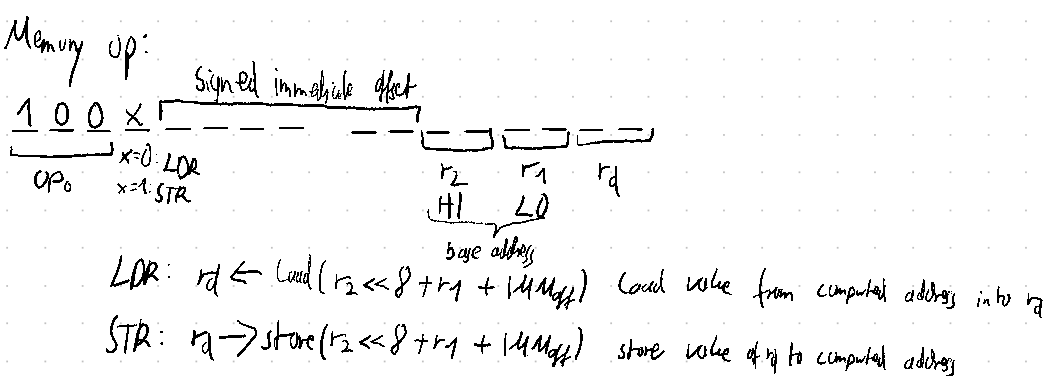 Memory op:
signed immediate offset
1 0 0 x _ _ _ _ _ _ _ _ _ _ _ _
OP₀ x=0: LDR
x=1: STR
r₂ r₁ r_d
HI LO
base address
LDR: r_d ← Load(r₂<<8 + r₁ + IMM_off) Load value from computed address into r_d
STR: r_d → store(r₂<<8 + r₁ + IMM_off) store value of r_d to computed address